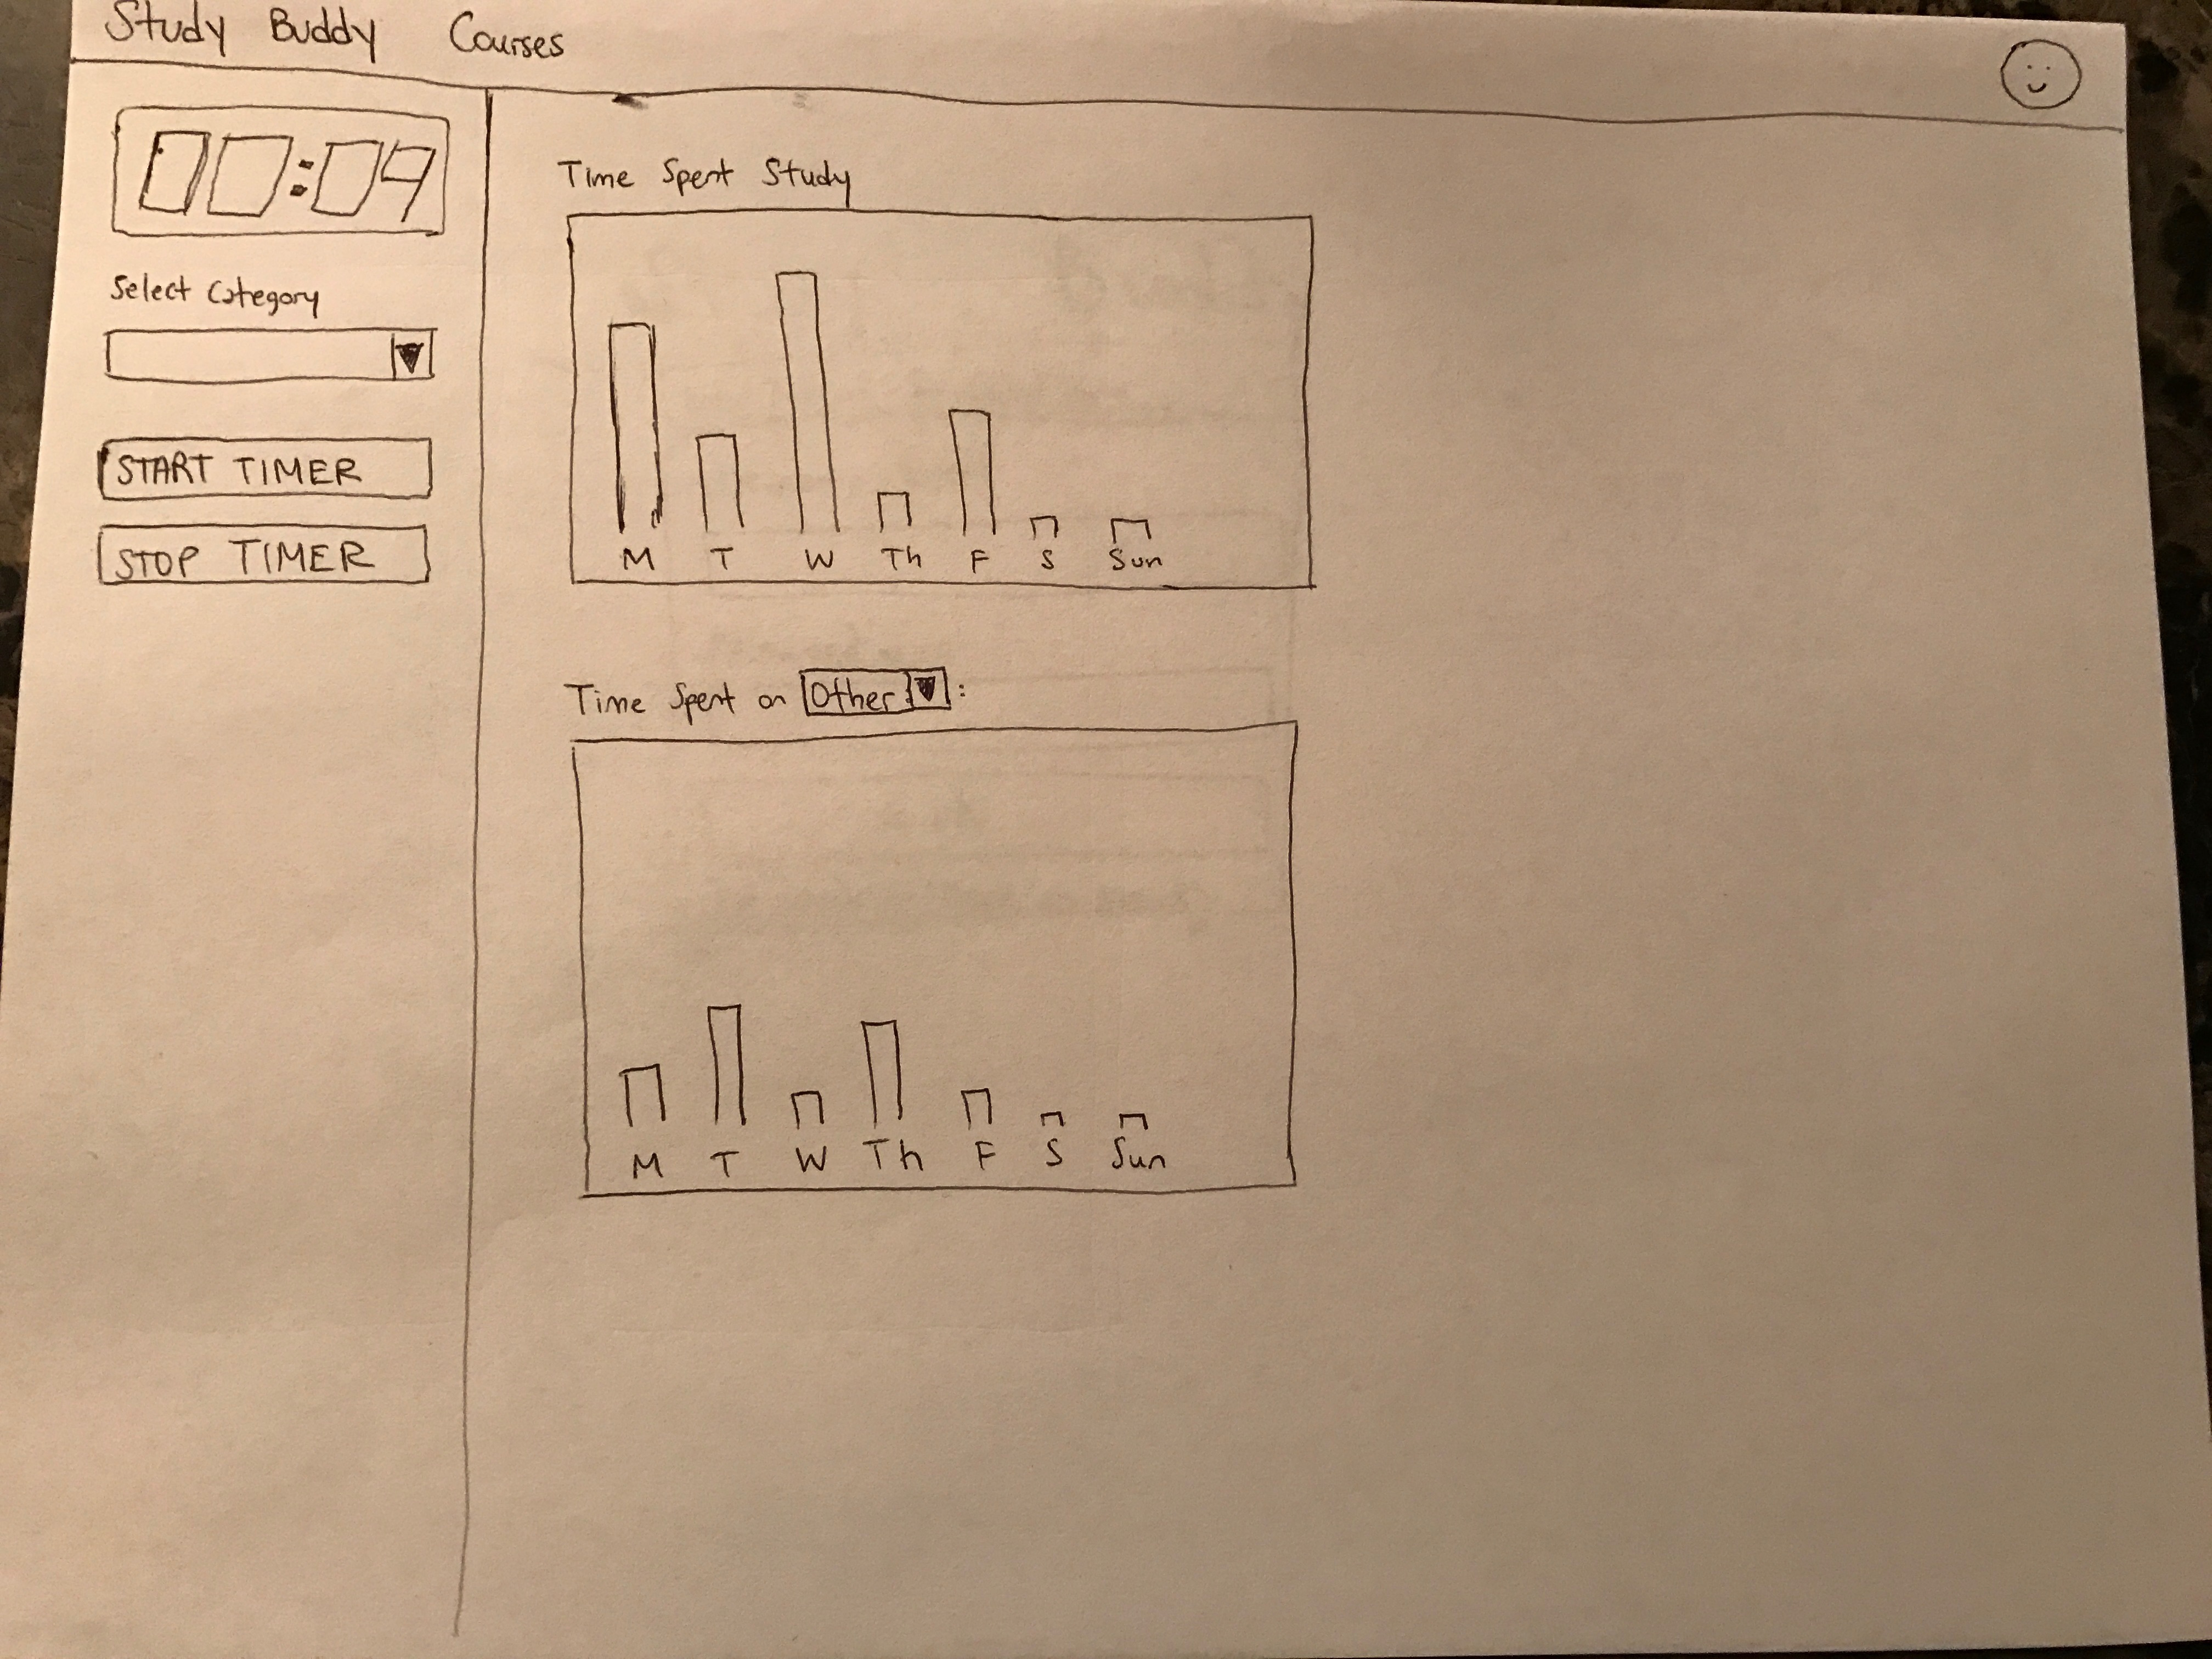 Study Buddy Courses
00:09
Select Category
START TIMER
STOP TIMER
Time Spent Study
M T W Th F S Sun
Time Spent on Other :
M T W Th F S Sun